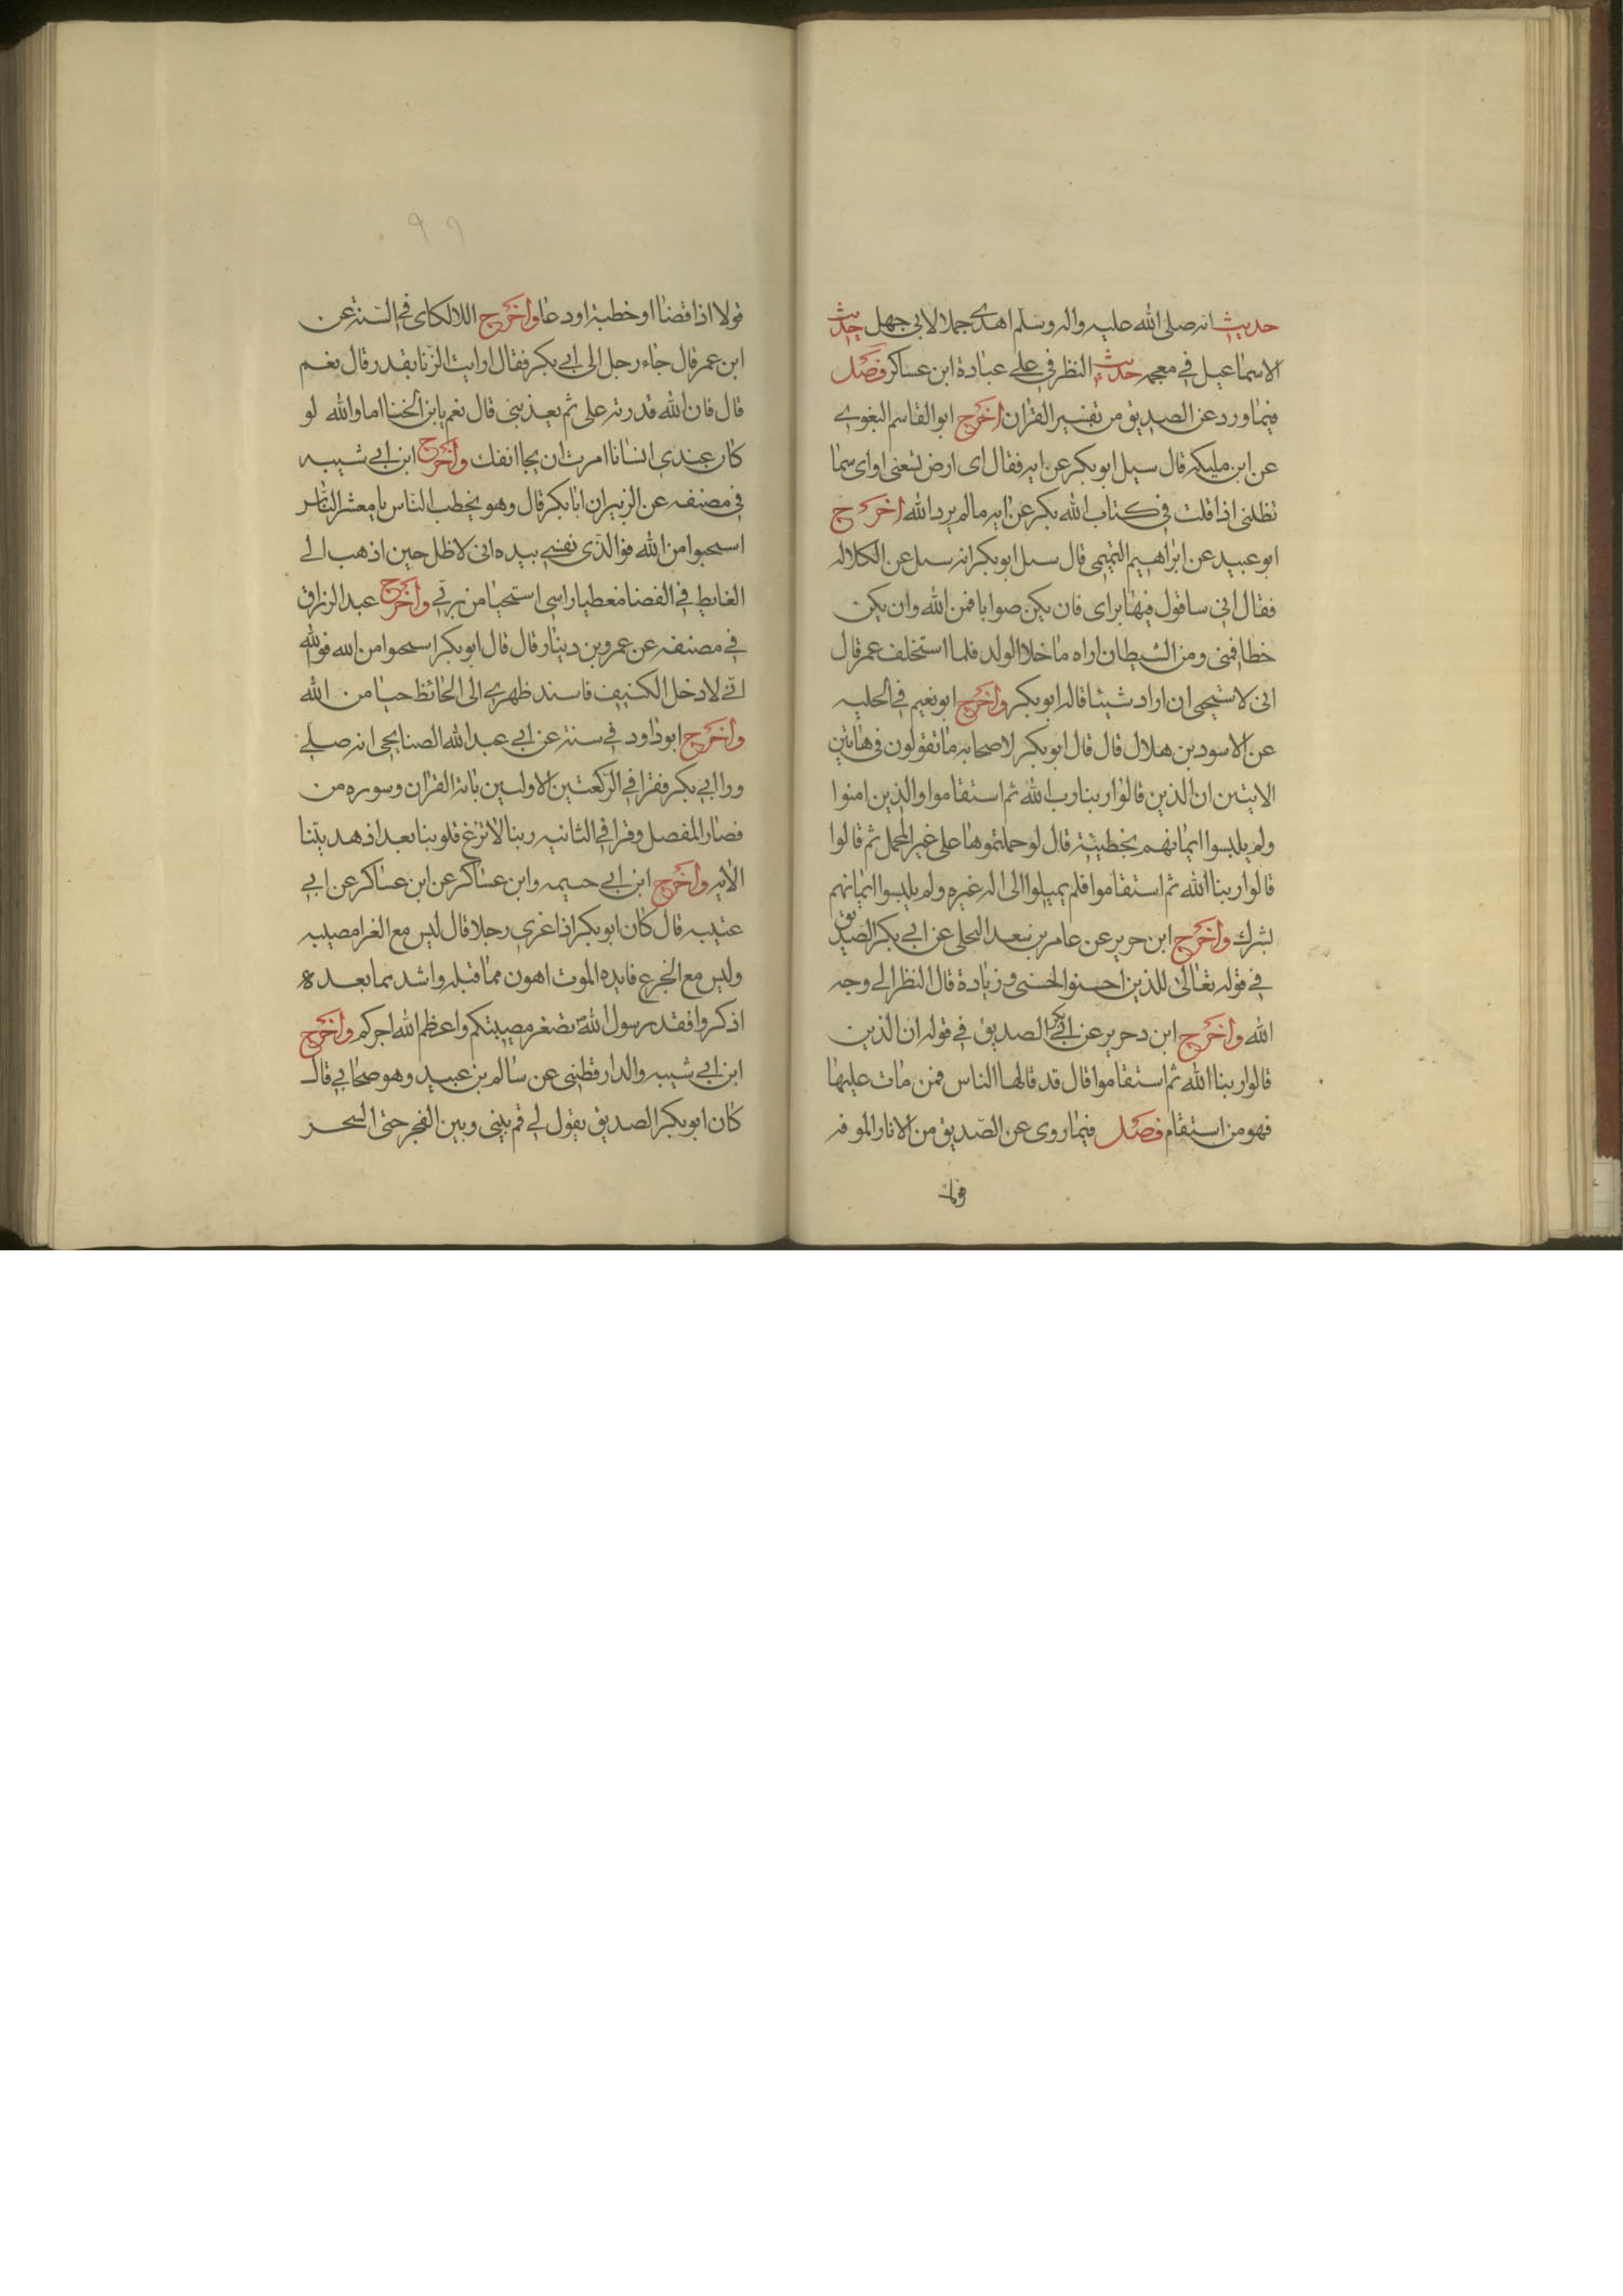 حديث انه صلى الله عليه واله وسلم اهدى جملا لابى جهل حديث
الاسماعيل في معجمه حديث النظر في على عبادة ابن عساكر فصل
فيما ورد عن الصديق من تفسير القران اخرج ابو القاسم البغوى
عن ابن مليكه قال سيل ابو بكر عن ايه فقال اى ارض تسعنى او اى سما
تظلنى اذا قلت في كتاب الله بكر عن ايه مالم يرد الله اخرج
ابو عبيد عن ابراهيم التيمى قال سىل ابو بكر انه سىل عن الكلاله
فقال انى ساقول فيها براى فان يكن صوابا فمن الله وان يكن
خطا فمنى ومن الشيطان اراه ما خلا الولد فلما استخلف عمر قال
انى لاستحى ان اراد شيئا قاله ابو بكر واخرج ابو نعيم في الحليه
عن الاسود بن هلال قال قال ابو بكر لاصحابه ما تقولون في هاتين
الايتين ان الذين قالوا ربنا رب الله ثم استقاموا والذين امنوا
ولم يلبسوا ايمانهم بخطيئة قال لو حملتموها على غير المحمل ثم قالوا
قالوا ربنا الله ثم استقاموا فلم يميلوا الى اله غيره ولم يلبسوا ايمانهم
بشرك واخرج ابن حرير عن عامر بن سعد البجلى عن ابي بكر الصديق
في قوله تعالى للذين احسنوا الحسنى وزيادة قال النظر الى وجه
الله واخرج ابن دحرير عن ابي بكر الصديق في قوله ان الذين
قالوا ربنا الله ثم استقاموا قال قد قالها الناس فمن مات عليها
فهو من استقام فصل فيما روى عن الصديق من الاثار الموقفه
قولا
٩٩
قولا اذا قضاا او خطبة او دعا واخرج اللالكاى في السنة عن
ابن عمر قال جاء رجل الى ابي بكر فقال ارايت الزنا بقدر قال نعم
قال فان الله قدرته على ثم يعذبنى قال نعم يا بن الخنا اما والله لو
كان عندى انسانا امرت ان يجا انفك واخرج ابن ابي شيبه
في مصنفه عن الزبير ان ابا بكر قال وهو يخطب الناس يا معشر الناس
استحيوا من الله فو الذى نفسي بيده انى لاظل حين اذهب الى
الغايط في الفضا مغطيا راسى استحيا من ربي واخرج عبد الرزاق
في مصنفه عن عمرو بن دينار قال قال ابو بكر استحيوا من الله فو الله
اني لادخل الكنيف فاسند ظهرى الى الحائط حيا من الله
واخرج ابو داود في سننه عن ابي عبد الله الصنابحى انه صلى
ورا ابي بكر فقرا في الركعتين الاوليين بام القران وسوره من
قصار المفصل وقرا في الثانيه ربنا لا تزغ قلوبنا بعد اذ هديتنا
الايه واخرج ابن ابي حيمه وابن عساكر عن ابن عساكر عن ابي
عتيبه قال كان ابو بكر اذا عزى رجلا قال ليس مع العزا مصيبه
وليس مع الجزع فايده الموت اهون مما قبله واشد مما بعده
اذكروا فقد رسول الله تصغر مصيبتكم واعظم الله اجركم واخرج
ابن ابي شيبه والدارقطنى عن سالم بن عبيد وهو صحابي قال
كان ابو بكر الصديق يقول لي قم بينى وبين الفجر حتى السحر